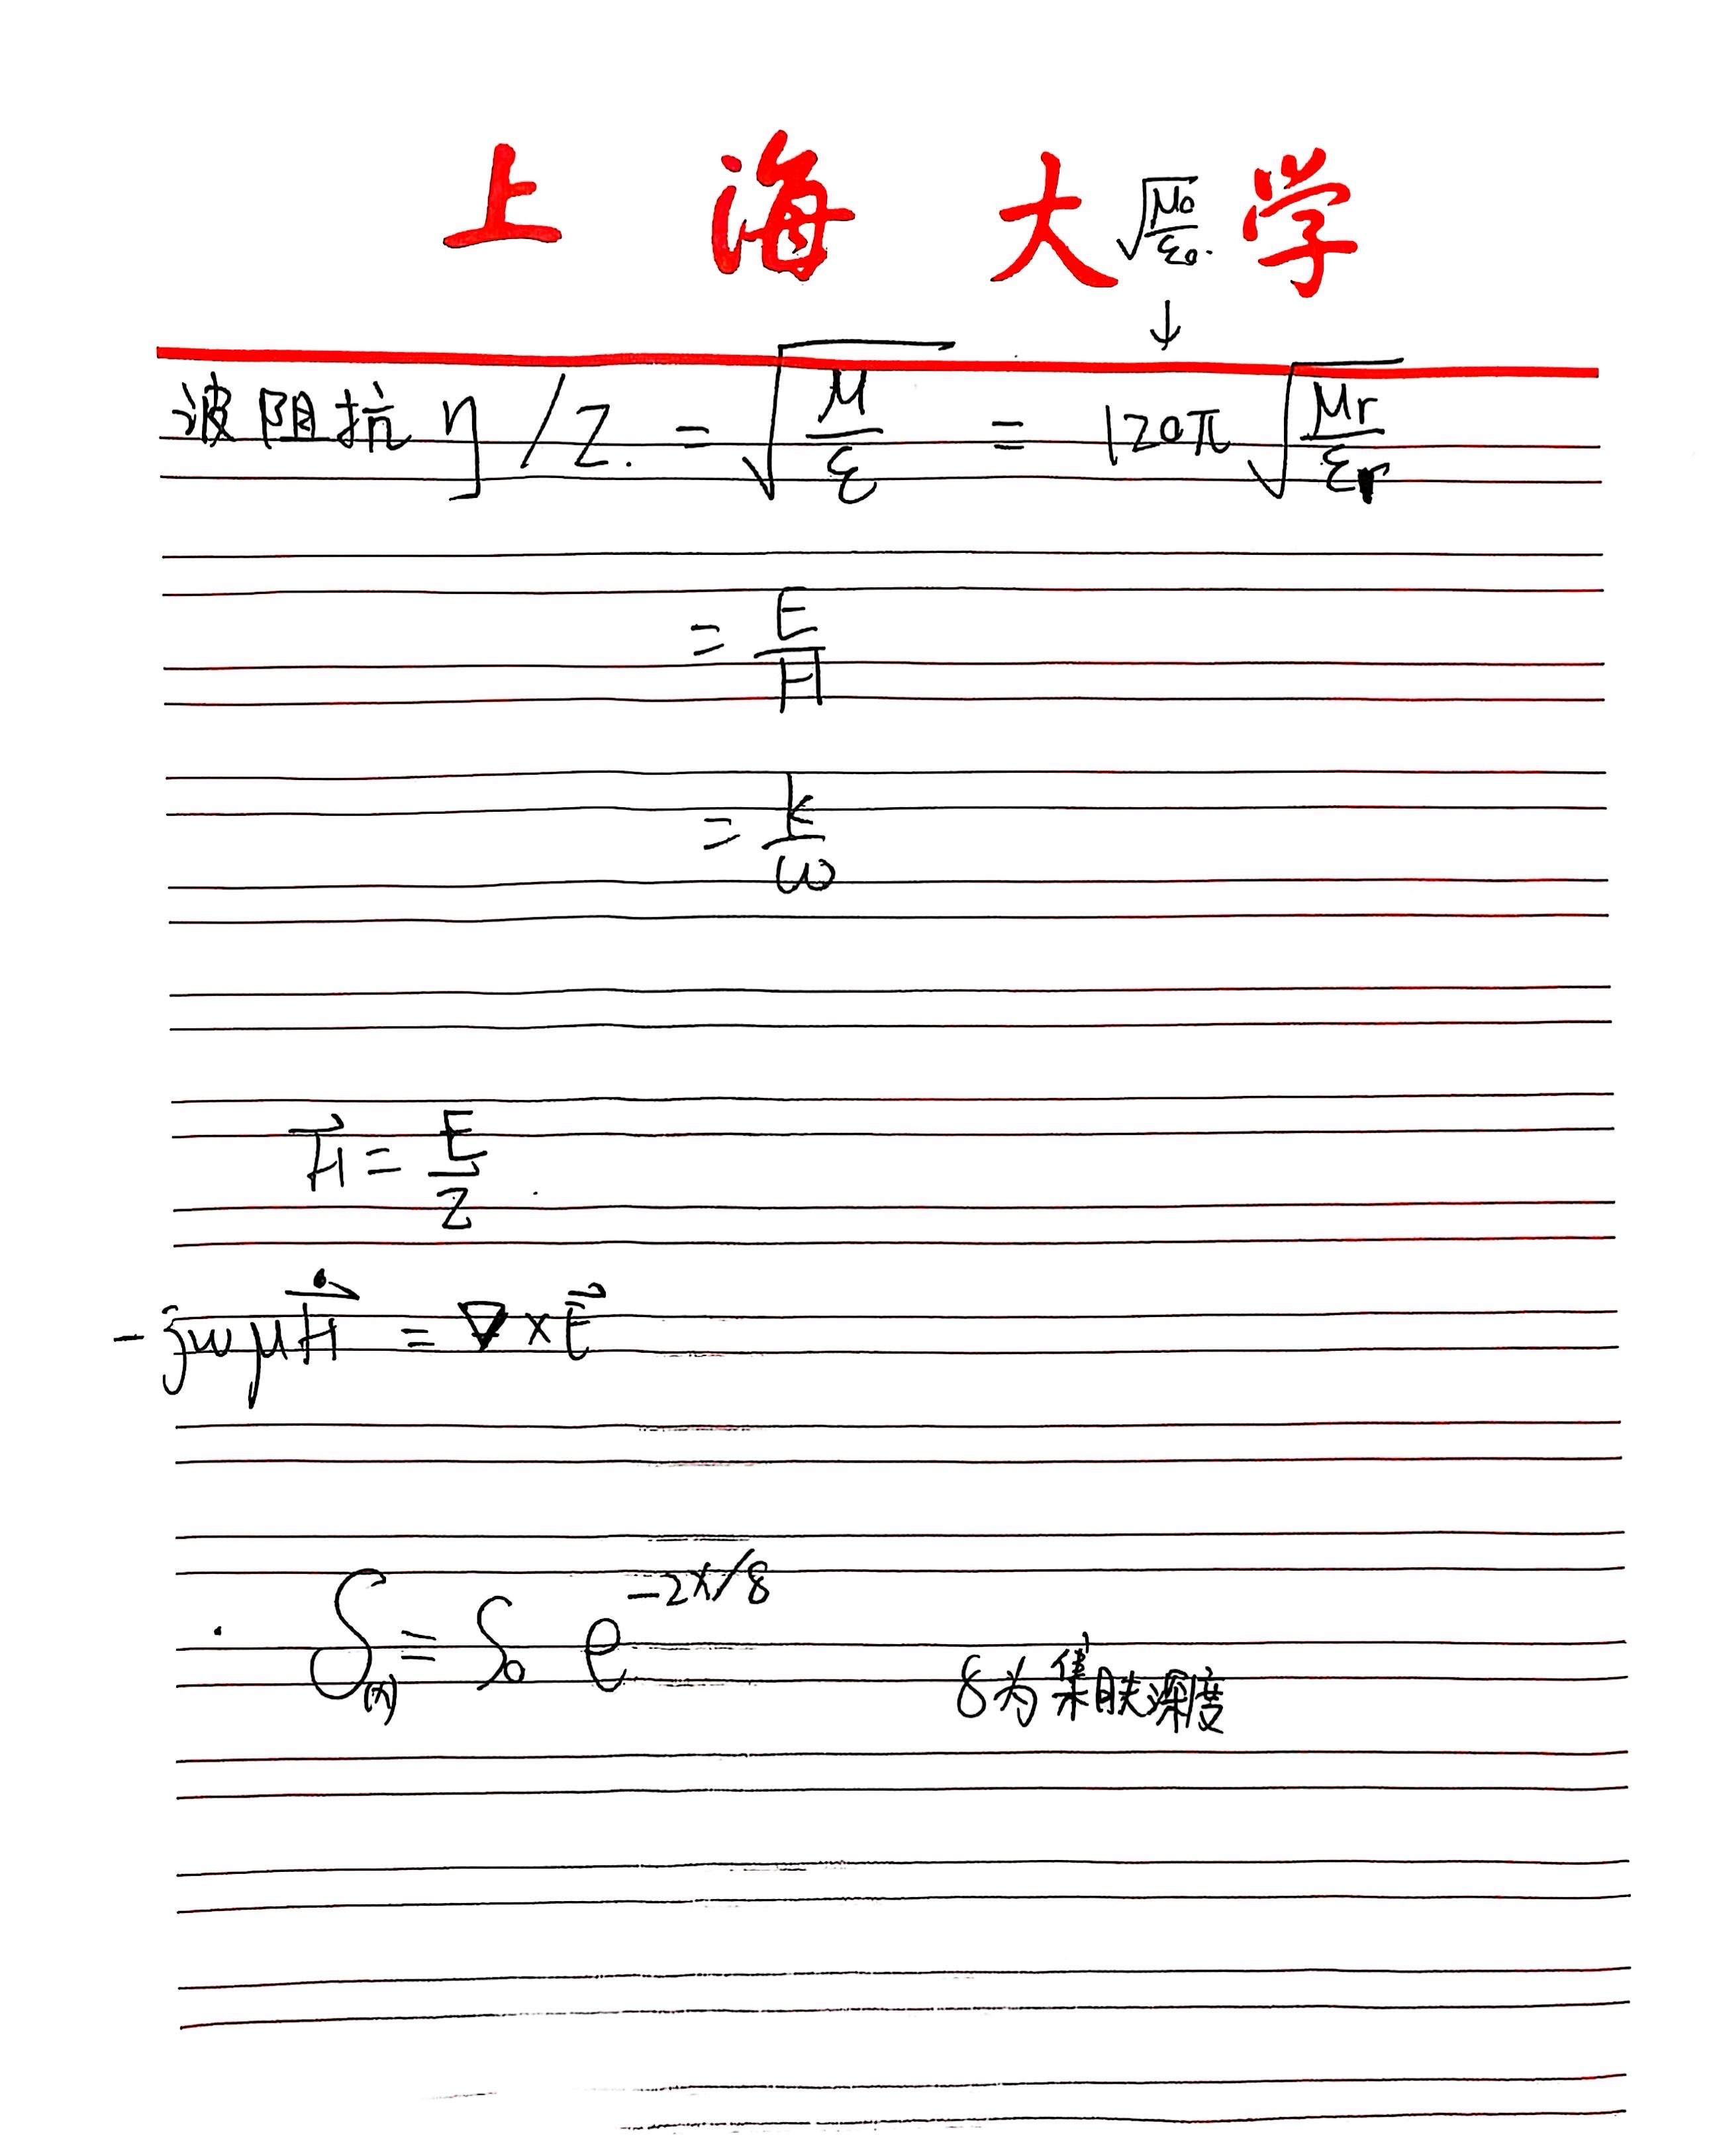 上海大学
√(μ₀/ε₀.)
↓
波阻抗 η/Z. = √(μ/ε) = 120π √(μr/εr)
= E/H
= k/ω
H⃗ = E/Z .
-jωμH⃗ = ∇×E⃗
S(x) = S₀ e^(-2x/δ)
δ为集肤深度